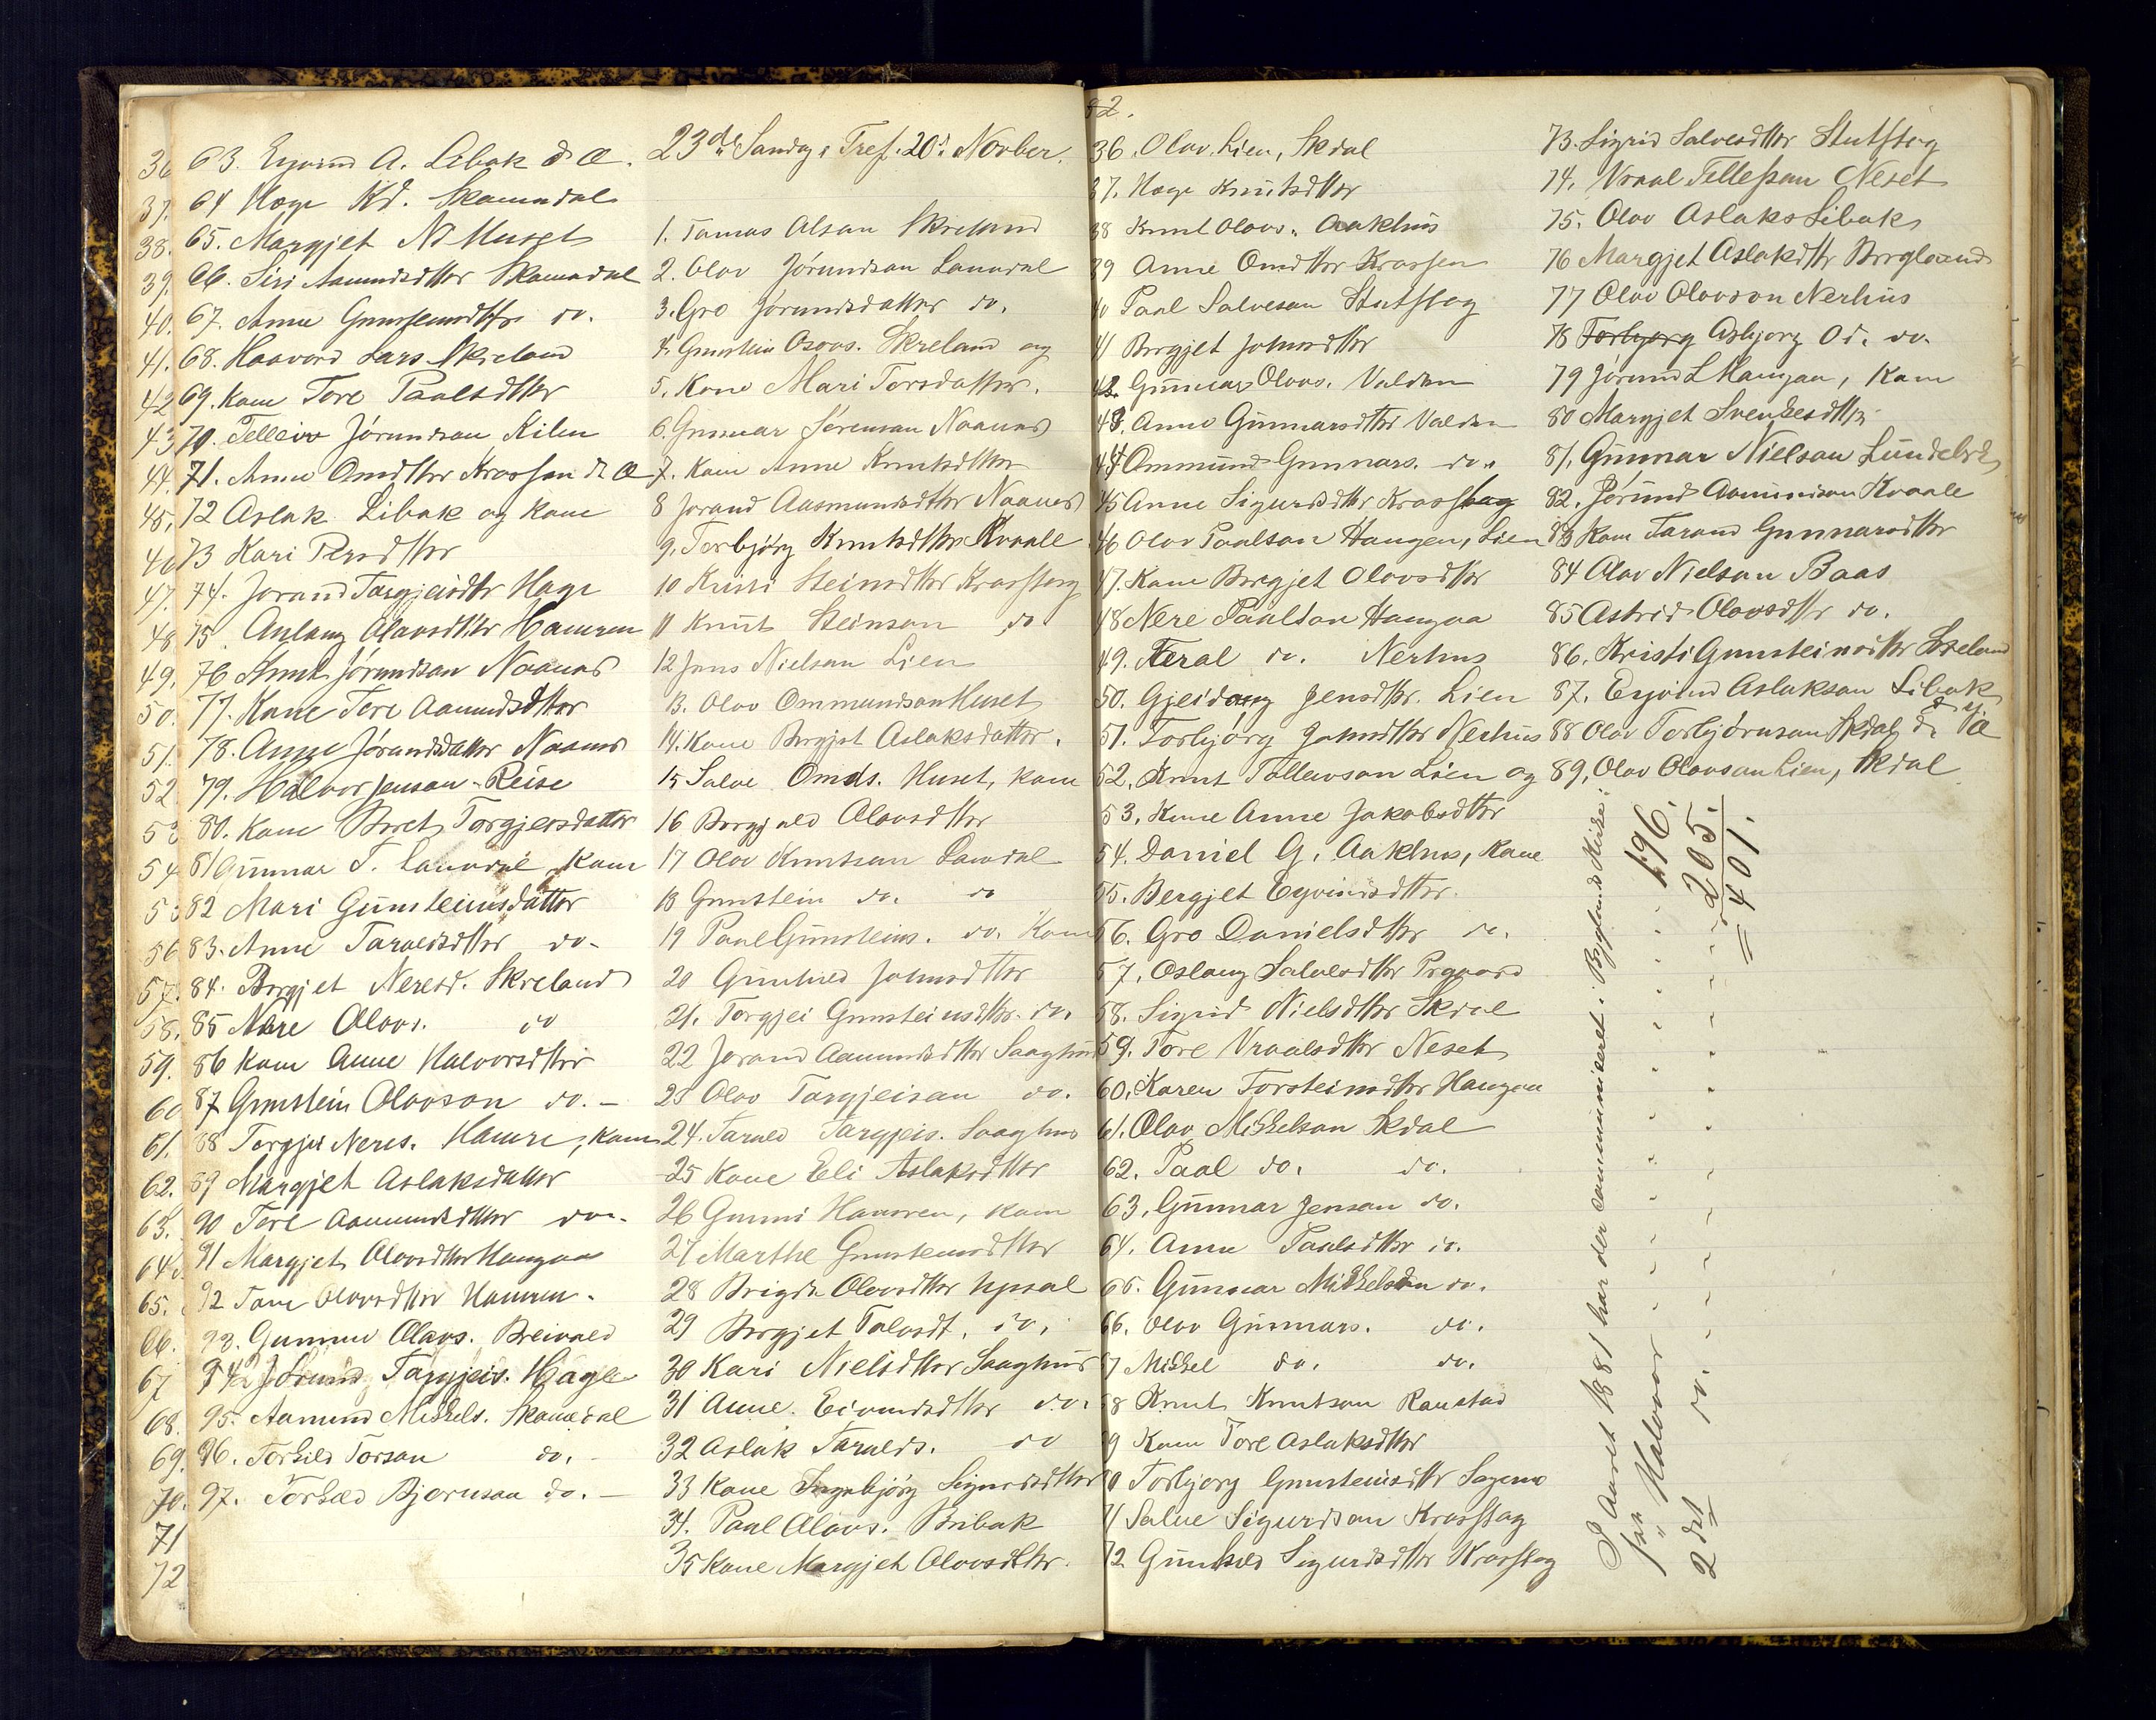 36 63. Eyvind A. Libak d. Æ.
37. 64 Hæge Kd. Skomedal
38. 65. Margjet Nd Huset
39. 66. Siri Aamundsdtter Skomedal
40. 67. Anne Gunsteinsdtter do.
41. 68. Haavord Lars. Skreland
42 69. Kone Tore Paalsdtter
43 70. Telleiv Jórundson Kilen
44. 71. Anne Omdtter Krossen d. Æ
45. 72 Aslak Libak og Kone
46 73 Kari Persdtter
47. 74. Jorand Targjeisdtr Hage
48 75. Aslaug Olavsdtter Hamren
49. 76 Knut Jórundson Noanes
50. 77. Kone Tore Aamundsdtter
51. 78. Anne Jórundsdatter Noanes
52. 79. Halvor Jenson Reise
53 80. Kone Boret Torgjersdatter
54 81 Gunnar T. Lauvdal, Kone
55 82 Mari Gunsteinsdatter
56 83. Anne Taraldsdtter do.
57. 84. Borgjet Neresd. Skreland
58. 85 Nere Olavs. do
59. 86 Kone Anne Halvorsdtter
60 87 Gunstein Olavson do. –
61. 88 Torgjei Neres. Hamre, Kone
62. 89 Margjet Aslaksdatter
63. 90 Tore Aamundsdtter do.
64. 91 Margjet Olavsdtter Haugaa
65. 92 Tone Olavsdtter Hamren.
66. 93. Gunnar Olavs. Breivald
67 94 Jórund Targjeis. Hage
68. 95. Aamund Mikkels. Skomedal
69. 96. Torkild Torson do.
70. 97. Torkild Bjornson do. –
71
72
23de Sandag e Tref. 20de Novber.
1. Tomas Olson Skreland
2. Olav Jórundson Lauvdal
3. Gro Jórundsdatter do.
4. Gunstein Osovs. Skreland og
5. Kone Mari Torsdatter.
6. Gunnar Sörenson Noanes
7. Kone Anne Knutsdtter
8 Jorand Aasmundsdtter Noanes
9. Torbjörg Knutsdtter Kvaale
10 Kristi Steinsdtter Krosstog
11 Knut Steinson do
12 Jens Nielson Lien
13. Olav Ommundson Huset
14. Kone Borgjet Aslaksdatter.
15 Salve Omds. Huset, Kone
16 Borgjild Olavsdtter
17 Olav Knutson Lauvdal
18 Gunstein do. do
19 Paal Gunsteins. do. Kone
20 Gunhild Johnsdtter
21. Torgjei Gunsteinsdtter. do.
22 Jorand Aamundsdtter Saaghus
23 Olav Targjeison do.
24. Tarald Targjeis. Saaghus
25 Kone Eli Aslaksdtter
26 Gunni Hamren, Kone
27 Marthe Gunsteinsdtter
28 Brigit Olavsdtter Upsal
29 Borgjet Talvsdt. do.
30 Kari Nielsdtter Saaghus
31 Anne Eivindsdtter do.
32 Aslak Taralds. do
33 Kone Ingebjörg Sigurdsdtter
34. Paal Olavs. Bribak
35 Kone Margjet Olavsdtter.
82.
36. Olav Lien, Skdal
37. Hæge Knutsdtter
38 Knut Olavs. Aakhus
39 Anne Omdtter Krossen
40 Paal Salveson Stutstog
41 Borgjet Johnsdtter
42. Gunnar Olavs. Valden
43. Anne Gunnarsdtter Valden
44 Ommund Gunnars. do.
45 Anne Sigurdsdtter Krosstog
46 Olav Paalson Haugen, Lien
47. Kone Borgjet Olavsdtter
48 Nere Paalson Haugaa
49. Taral do. Nerhus
50. Gjeidaug Jensdtter. Lien
51. Torbjörg Johnsdtter Nerhus
52. Knut Tollevson Lien og
53. Kone Anne Jakobsdtter
54. Daniel G. Aakhus, Kone
55. Bergjet Eyvindsdtter.
56. Gro Danielsdtter do.
57. Oslaug Salvesdtter Prgaard
58. Sigrid Nielsdtter Skdal
59. Tore Vraalsdtter Neset
60. Karen Torsteinsdtter Haugen
61. Olav Mikkelson Skdal
62. Paal do. do.
63. Gunnar Jenson do.
64. Anne Paalsdtter do.
65. Gunnar Mikkelson do.
66. Olav Gunnars. do.
67 Mikkel do. do.
68 Knut Knutson Raustad
69 Kone Tore Aslaksdtter
70 Torbjorg Gunsteinsdtr Sagmo
71 Salve Sigurdson Krosstog
72 Gunhild Sigurdsdtter Krosstog
73. Sigrid Salvesdtter Stutstog
74. Vraal Tellefson Neset
75. Olav Aslaks Libak
76 Margjet Aslaksdtr Borgland
77 Olav Olavson Nerhus
78 Torbjorg Asbjorg Od. do.
79 Jórund L Haugan, Kone
80 Margjet Svenkesdtter
81. Gunnar Nielson Lundebrd
82. Jórund Aamundson Kvaale
83 Kone Jorand Gunnarsdtter
84 Olav Nielson Baas
85 Astrid Olavsdtr do.
86. Kristi Gunsteinsdtter Skreland
87. Eyvind Aslakson Libak d. y.
88 Olav Torbjórnson Skdal d. Æ
89. Olav Olavson Lien, Skdal
I Aaret 1881 har der communiceret i Byglands Kirke
på Halvaar " " " " " 196.
2det do. - - - - - 205.
= 401.